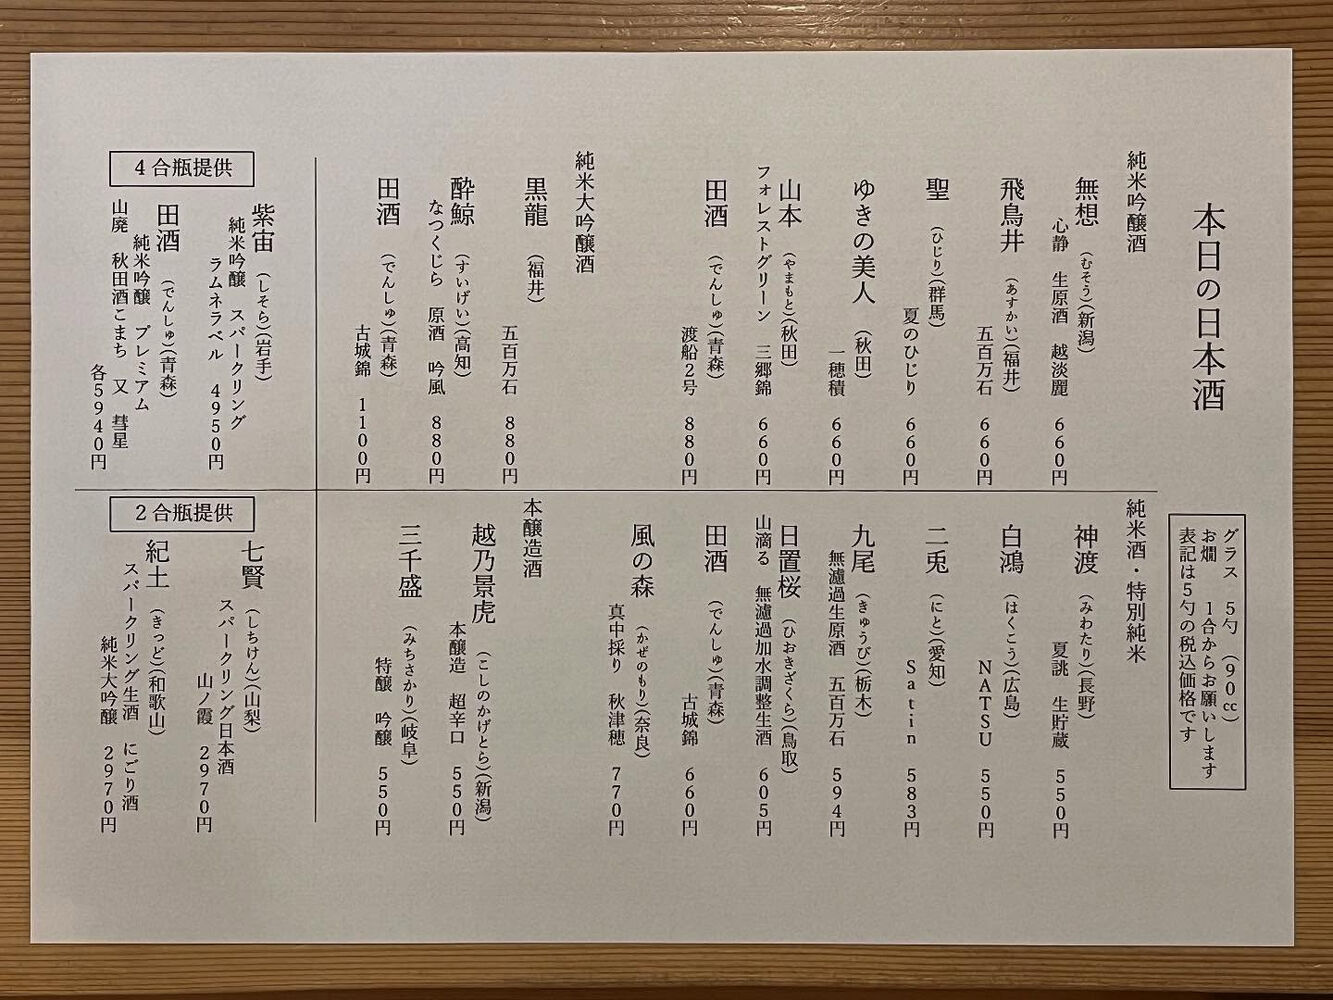 本日の日本酒
グラス 5勺 (90cc)
お燗 1合からお願いします
表記は5勺の税込価格です
純米吟醸酒
無想 (むそう)(新潟)
心静 生原酒 越淡麗 660円
飛鳥井 (あすかい)(福井)
五百万石 660円
聖 (ひじり)(群馬)
夏のひじり 660円
ゆきの美人 (秋田)
一穂積 660円
山本 (やまもと)(秋田)
フォレストグリーン 三郷錦 660円
田酒 (でんしゅ)(青森)
渡船2号 880円
純米大吟醸酒
黒龍 (福井)
五百万石 880円
酔鯨 (すいげい)(高知)
なつくじら 原酒 吟風 880円
田酒 (でんしゅ)(青森)
古城錦 1100円
純米酒・特別純米
神渡 (みわたり)(長野)
夏誂 生貯蔵 550円
白鴻 (はくこう)(広島)
NATSU 550円
二兎 (にと)(愛知)
Satin 583円
九尾 (きゅうび)(栃木)
無濾過生原酒 五百万石 594円
日置桜 (ひおきざくら)(鳥取)
山滴る 無濾過加水調整生酒 605円
田酒 (でんしゅ)(青森)
古城錦 660円
風の森 (かぜのもり)(奈良)
真中採り 秋津穂 770円
本醸造酒
越乃景虎 (こしのかげとら)(新潟)
本醸造 超辛口 550円
三千盛 (みちさかり)(岐阜)
特醸 吟醸 550円
4合瓶提供
紫宙 (しそら)(岩手)
純米吟醸 スパークリング
ラムネラベル 4950円
田酒 (でんしゅ)(青森)
純米吟醸 プレミアム
山廃 秋田酒こまち 又 彗星
各5940円
2合瓶提供
七賢 (しちけん)(山梨)
スパークリング日本酒
山ノ霞 2970円
紀土 (きっど)(和歌山)
スパークリング生酒 にごり酒
純米大吟醸 2970円